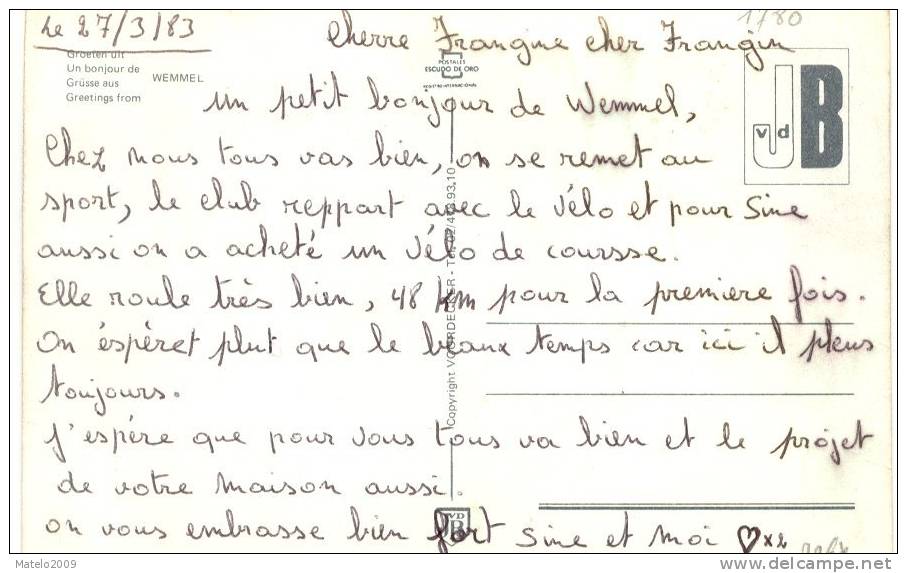 Le 27/3/83
1780
Cherre Frangine cher Frangin
Groeten uit
Un bonjour de
Grüsse aus
Greetings from
WEMMEL
POSTALES
ESCUDO DE ORO
REGISTRO INTERNACIONAL
v d B
un petit bonjour de Wemmel,
Chez nous tous vas bien, on se remet au
sport, le club reppart avec le Vélo et pour Sine
aussi on a acheté un Vélo de coursse.
Elle roule très bien, 48 km pour la premiere fois.
On éspéret plut que le beaux temps car ici il pleus
toujours.
J'espère que pour vous tous va bien et le projet
de votre maison aussi.
on vous embrasse bien fort Sine et Moi ♡x2
Copyright VOORDECKER - Tel. 02/4 93.10
VD
B
Matelo2009
delcampe.net